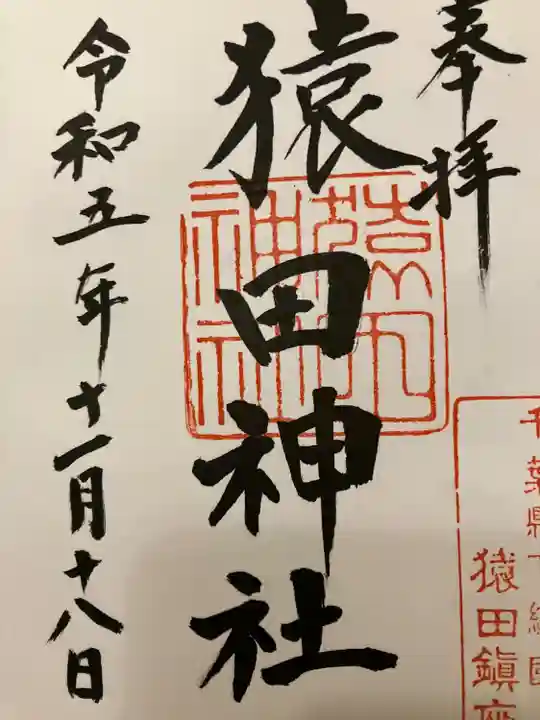 奉拝
千葉縣下総國
猿田鎮座
猿田神社
猿田神社
令和五年十一月十八日